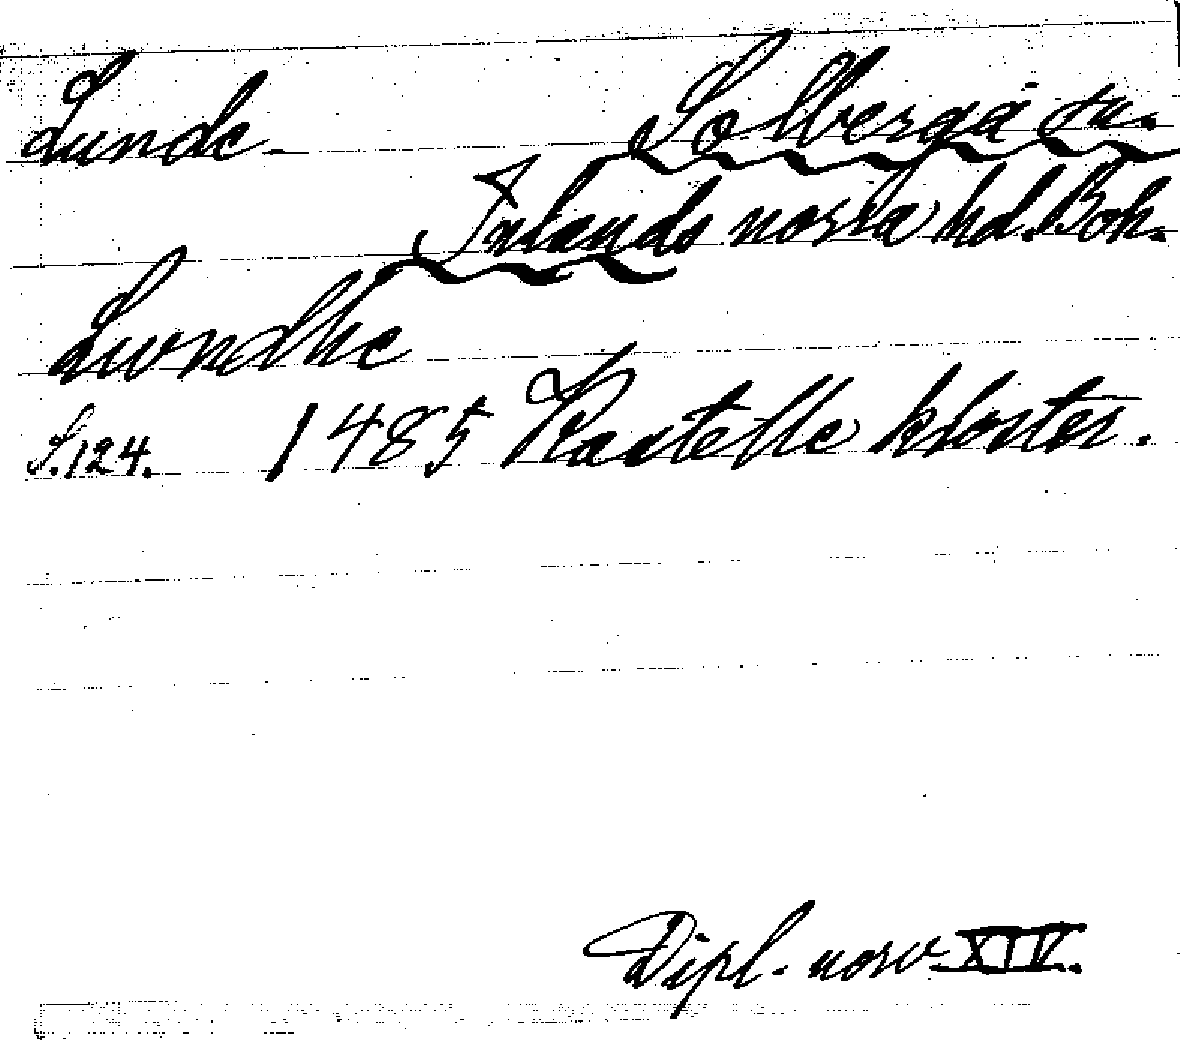 Lunde Solberga sn.
Inlands norra hd. Boh.
Lwndhe
S. 124. 1485 Kastelle kloster.
Dipl. norv. XIV.